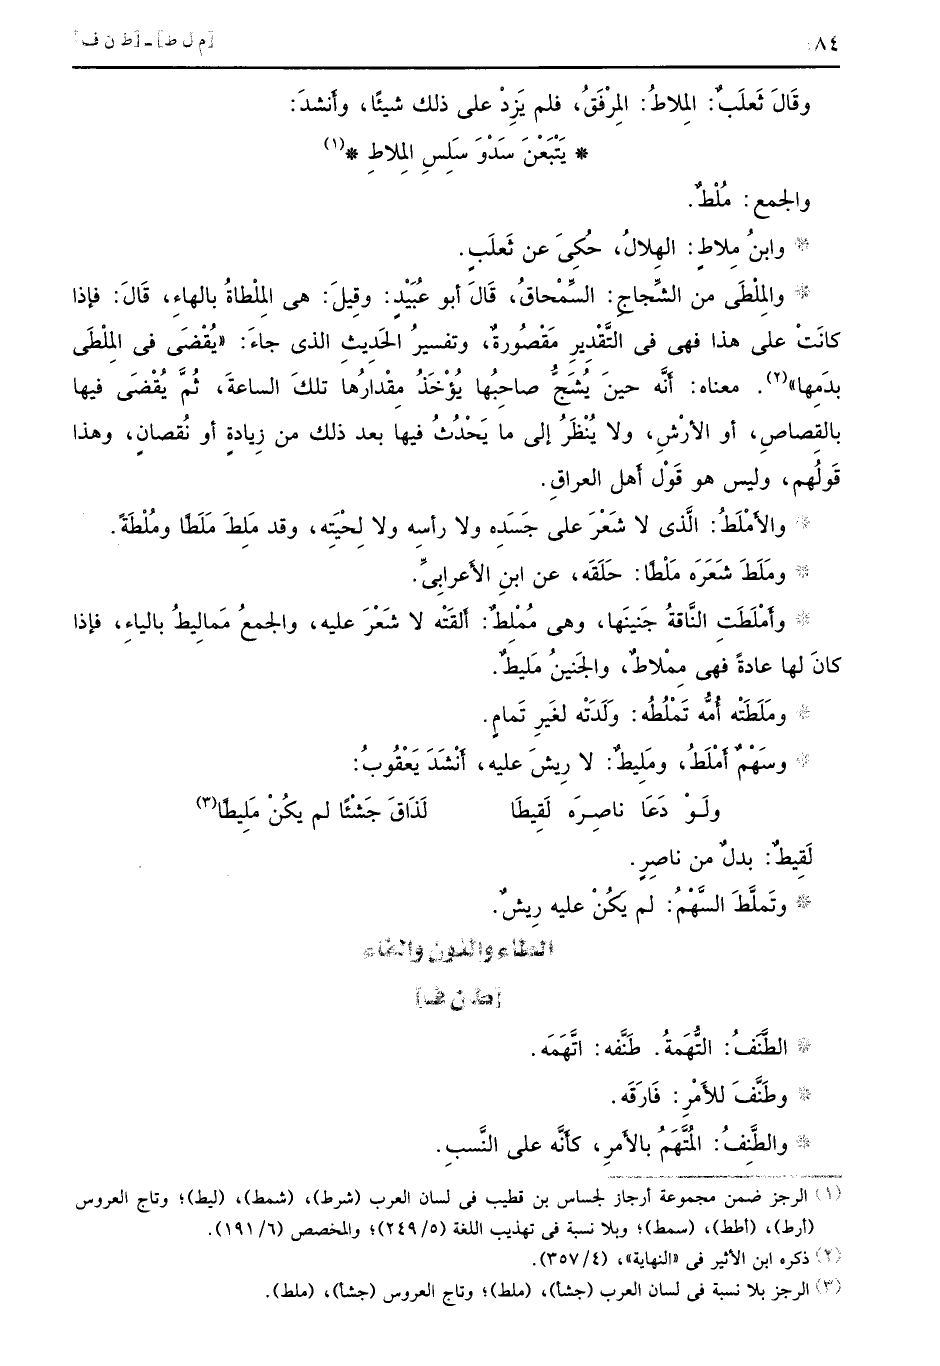 ٨٤ [م ل ط] ـ [ط ن ف]
وقَالَ ثَعلَبٌ: المِلاطُ: المِرْفَقُ، فلم يَزِدْ على ذلك شيئًا، وأنشدَ:
* يَتْبَعْنَ سَدْوَ سَلِسِ المِلاطِ *(١)
والجمع: مُلْطٌ.
* وابنُ مِلاطٍ: الهِلالُ، حُكِىَ عن ثَعلَبٍ.
* والمِلْطَى من الشِّجاجِ: السِّمْحاقُ، قَالَ أبو عُبَيْدٍ: وقيلَ: هى المِلْطاةُ بالهاءِ، قَالَ: فإذا
كانَتْ على هذا فهى فى التَّقْديرِ مَقْصُورةٌ، وتفسيرُ الحَديثِ الذى جاءَ: «يُقْضَى فى المِلْطَى
بدَمِها»(٢). معناه: أنَّه حينَ يُشَجُّ صاحبُها يُؤْخَذُ مِقْدارُها تلكَ الساعةَ، ثُمَّ يُقْضَى فيها
بالقصاصِ، أو الأرْشِ، ولا يُنْظَرُ إلى ما يَحْدُثُ فيها بعد ذلك من زيادةٍ أو نُقصانٍ، وهذا
قَولُهم، وليس هو قَوْل أهل العراقِ.
* والأمْلَطُ: الَّذى لا شَعْرَ على جَسَدِه ولا رأسِه ولا لِحْيَتِه، وقد مَلِطَ مَلَطًا ومُلْطَةً.
* ومَلَطَ شَعَرَه مَلْطًا: حَلَقَه، عن ابنِ الأعرابىِّ.
* وأمْلَطَتِ النَّاقةُ جَنينَها، وهى مُمْلِطٌ: ألقَتْه لا شَعْرَ عليه، والجمعُ مَماليطُ بالياءِ، فإذا
كانَ لها عادةً فهى مِمْلاطٌ، والجَنينُ مَليطٌ.
* ومَلَطَتْه أُمُّه تَمْلُطُه: وَلَدَتْه لغَيرِ تَمامٍ.
* وسَهْمٌ أمْلَطُ، ومَليطٌ: لا رِيشَ عليه، أنْشَدَ يَعْقُوبُ:
ولَـوْ دَعَا ناصِـرَه لَقيطَا لَذَاقَ جَشْئًا لم يكُنْ مَلِيطًا(٣)
لَقِيطٌ: بدلٌ من ناصِرٍ.
* وتَملَّطَ السَّهْمُ: لم يَكُنْ عليه رِيشٌ.
الطاء والنون والفاء
[ط ن ف]
* الطَّنَفُ: التُّهَمةُ. طَنَّفه: اتَّهَمَه.
* وطَنَّفَ للأمْرِ: فَارَقَه.
* والطَّنِفُ: المُتَّهَمُ بالأمرِ، كأنَّه على النَّسبِ.
(١) الرجز ضمن مجموعة أرجاز لجساس بن قطيب فى لسان العرب (شرط)، (شمط)، (ليط)؛ وتاج العروس
(أرط)، (أطط)، (سمط)؛ وبلا نسبة فى تهذيب اللغة (٢٤٩/٥)؛ والمخصص (١٩١/٦).
(٢) ذكره ابن الأثير فى «النهاية»، (٣٥٧/٤).
(٣) الرجز بلا نسبة فى لسان العرب (جشأ)، (ملط)؛ وتاج العروس (جشأ)، (ملط).